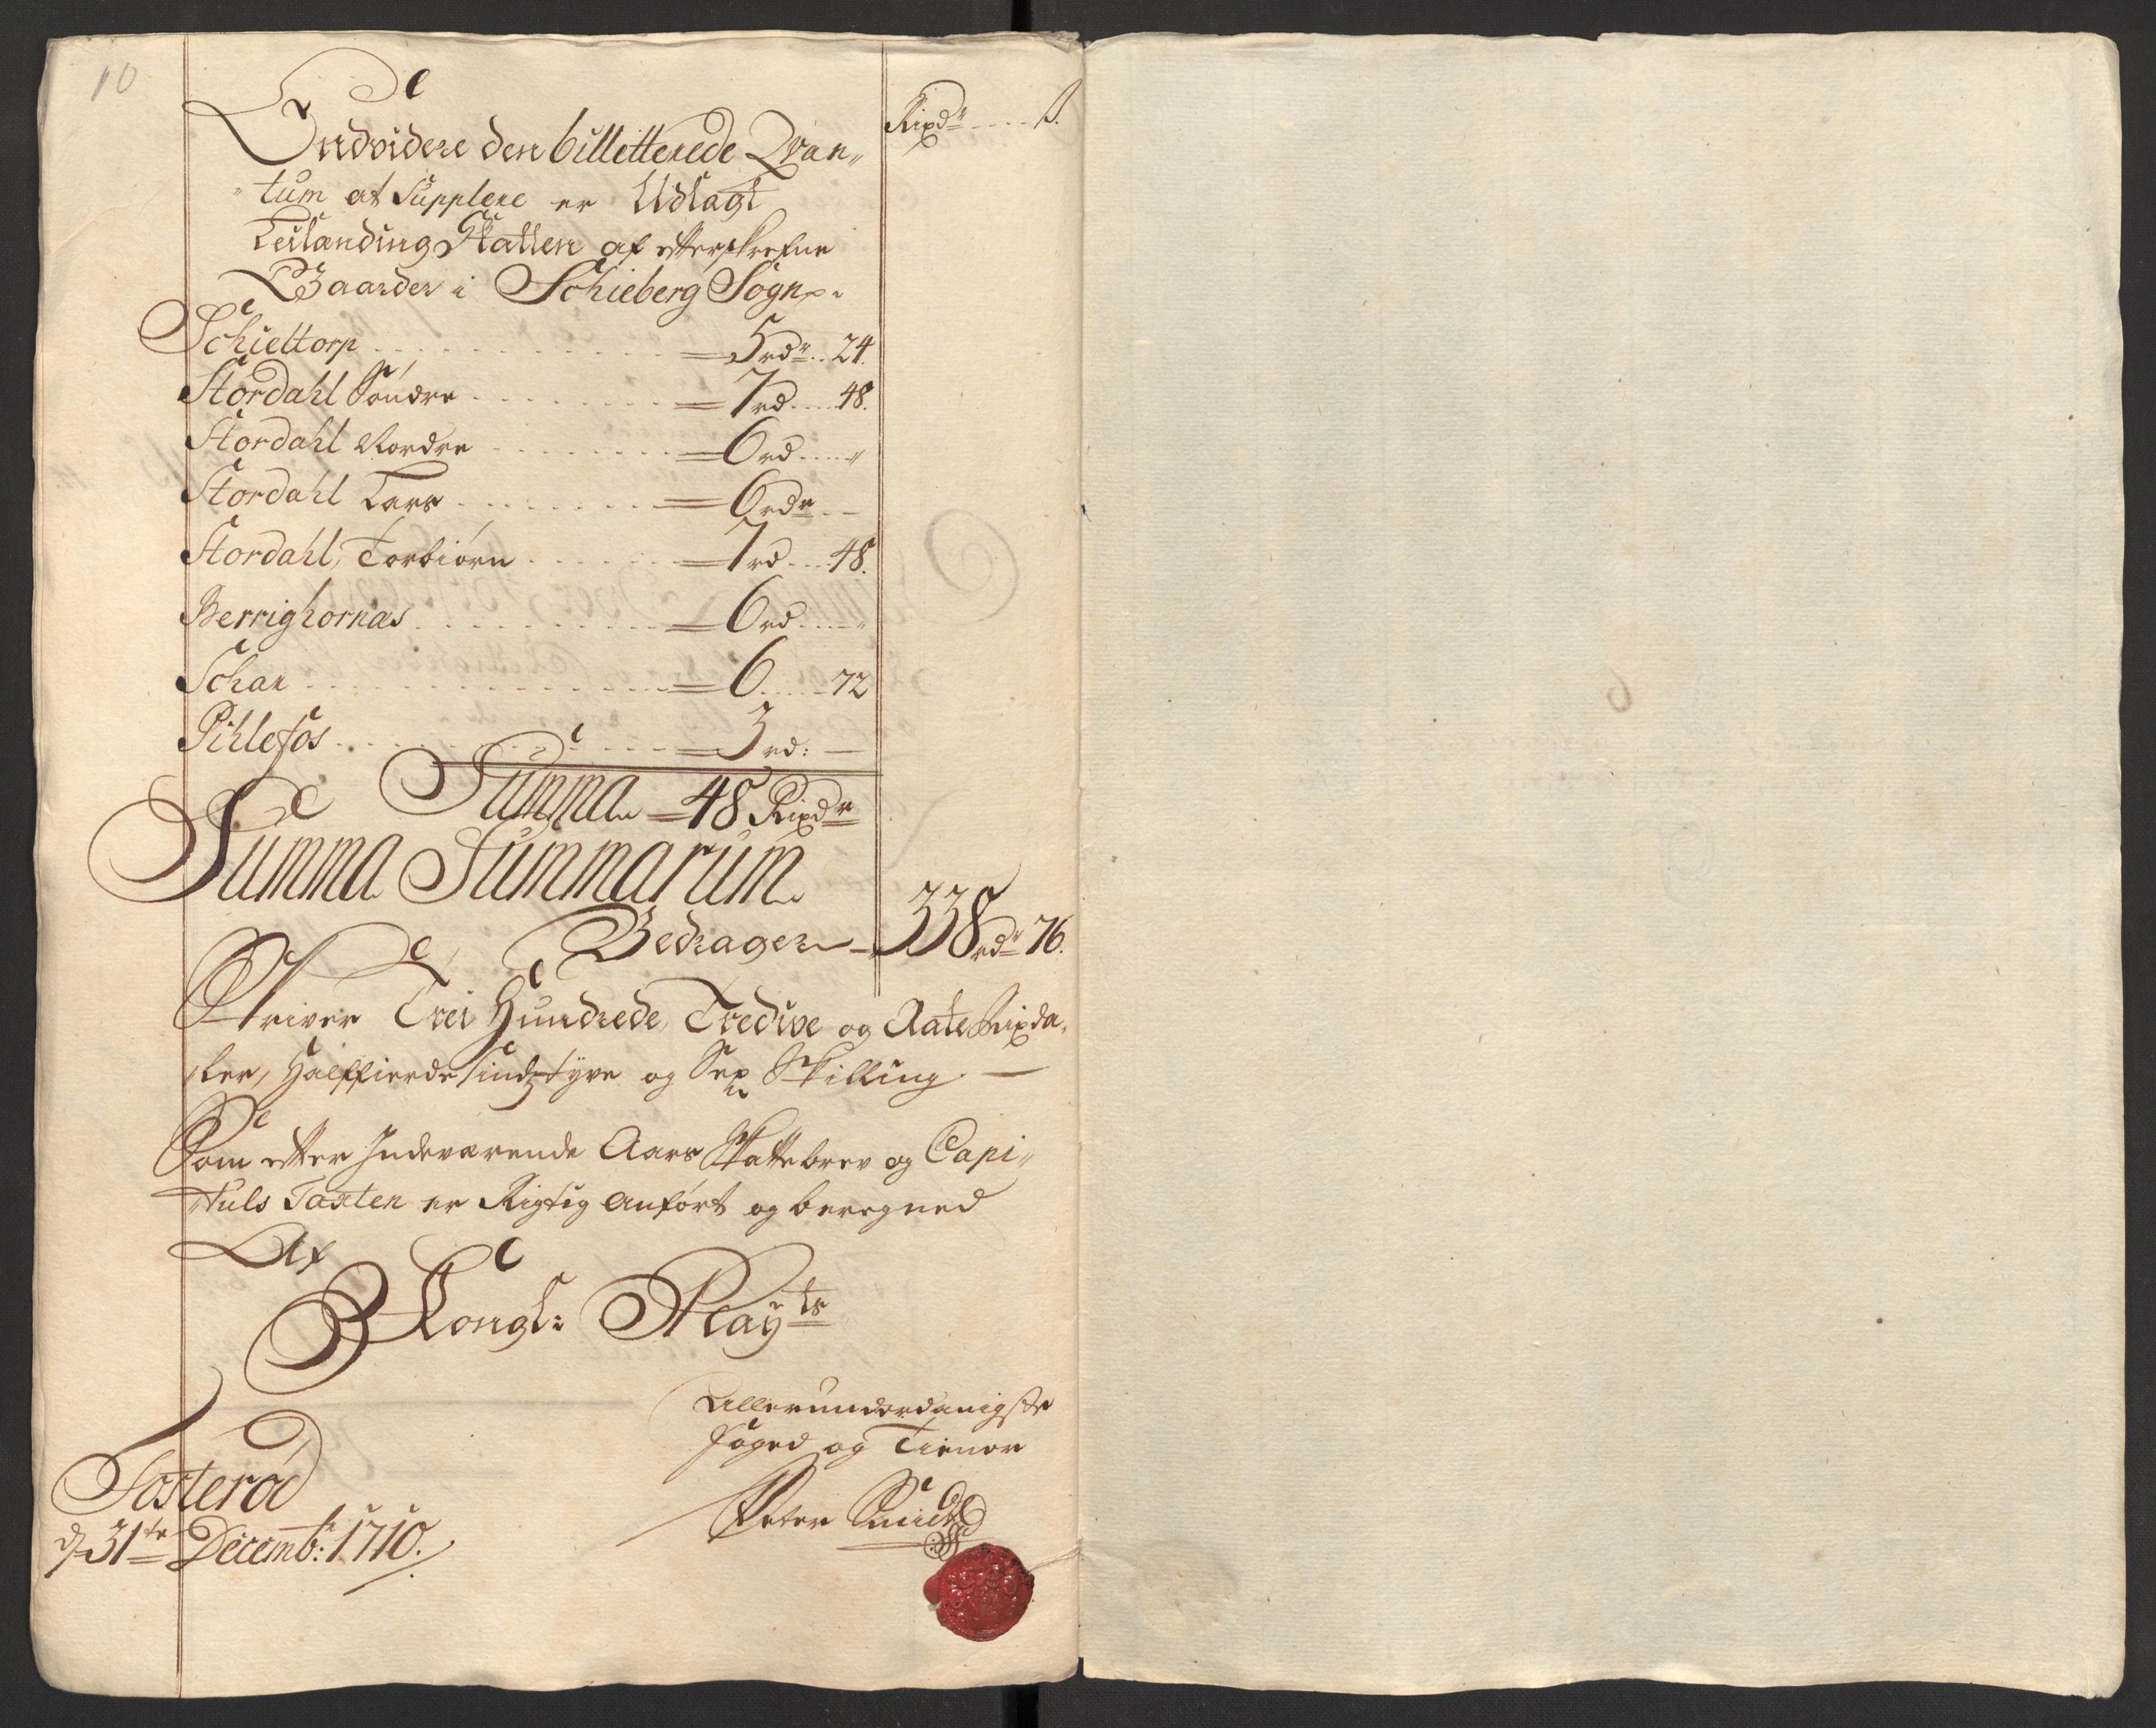 10
Rixdr ß.
Endvidere den billitterede Qvan„
„tum at Supplere er Udlagt
Leilandings Skatten af efterskrefne
Gaarder i Schieberg Sogn
Schieltorp = 5 rdr 24.
Stordahl Søndre = 7 rd 48.
Stordahl Nordre = 6 rd „
Stordahl Lars = 6 rdr —
Stordahl, Torbiørn = 7 rd 48.
Berrighornas = 6 rd „
Schar = 6 72
Pihlefos = 3 rd: —
Summa = 48 Rixdr
Summa Summarum
Bedrager — 338 rdr 76.
Skriver Trei Hundrede, Tredive og Aate Rixda„
„ler, Halffierdesindztyve og Sex Skilling. —
Som efter Indeværende Aars Skattebrev og Capi„
tuls Taxten er Rigtig Anført og beregned
Af
Kongl: Mayts
Allerunderdanigste
Foged og Tienere
Peter Smidt
Tosterød
d 31te Decembr: 1710.